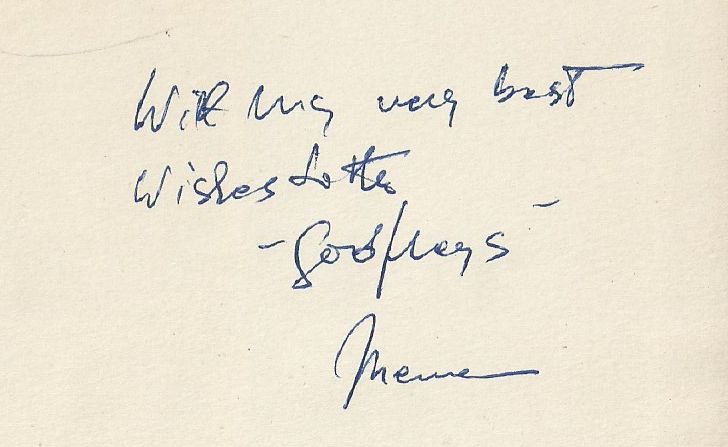 With my very best
wishes to the
- Godfreys -